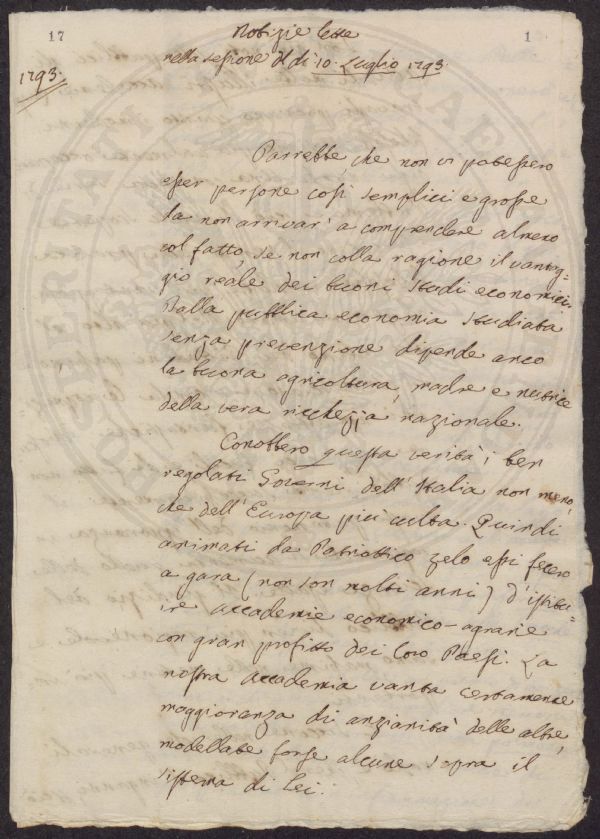 17
1
Notizie lette
nella sessione del dì 10. Luglio 1793.
1793.
Parrebbe, che non vi potessero
esser persone così semplici e grosse
da non arrivar' a comprendere almeno
col fatto, se non colla ragione il vantag-
gio reale dei buoni studi economici.
Dalla pubblica economia studiata
senza prevenzione dipende anco
la buona agricoltura, madre e nutrice
della vera ricchezza nazionale.
Conobbero questa verità i ben
regolati Governi dell'Italia non meno,
che dell'Europa più culta. Quindi
animati da Patriottico zelo essi fecero
a gara (non son molti anni) d'istitui-
re Accademie economico-agrarie
con gran profitto dei loro Paesi. La
nostra Accademia vanta certamente
maggioranza di anzianità delle altre,
modellate forse alcune sopra il
sistema di Lei.